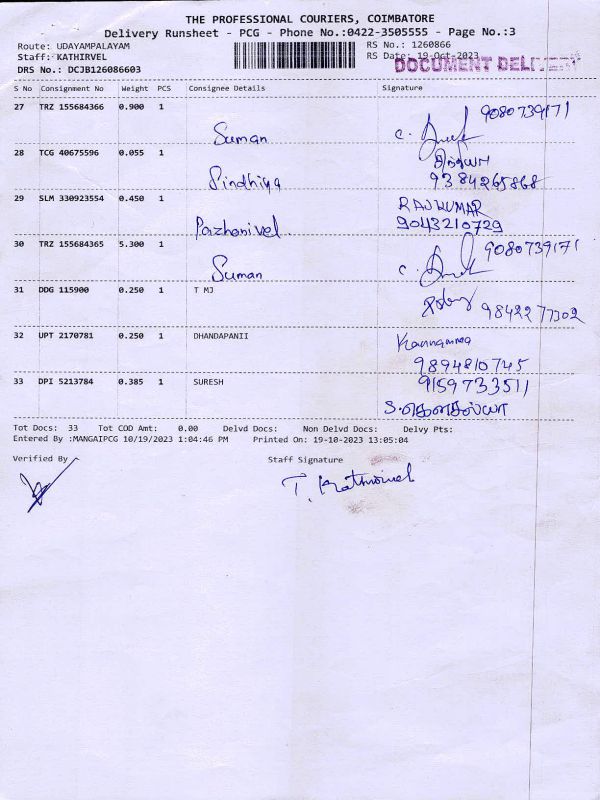 THE PROFESSIONAL COURIERS, COIMBATORE
Delivery Runsheet - PCG - Phone No.:0422-3505555 - Page No.:3
Route: UDAYAMPALAYAM RS No.: 1260866
Staff: KATHIRVEL RS Date: 19-Oct-2023
DOCUMENT DELIVERY
DRS No.: DCJB126086603
S No Consignment No Weight PCS Consignee Details Signature
27 TRZ 155684366 0.900 1 9080739171
Suman C.
28 TCG 40675596 0.055 1
Sindhiya 9384265868
29 SLM 330923554 0.450 1 RAJKUMAR
Pazhanivel. 9043210729
30 TRZ 155684365 5.300 1 9080739171
Suman C.
31 DDG 115900 0.250 1 T MJ
9842277302
32 UPT 2170781 0.250 1 DHANDAPANII Kannamma
9894810745
33 DPI 5213784 0.385 1 SURESH 9159733511
S.கௌசல்யா
Tot Docs: 33 Tot COD Amt: 0.00 Delvd Docs: Non Delvd Docs: Delvy Pts:
Entered By :MANGAIPCG 10/19/2023 1:04:46 PM Printed On: 19-10-2023 13:05:04
Verified By Staff Signature
T. Kathirvel